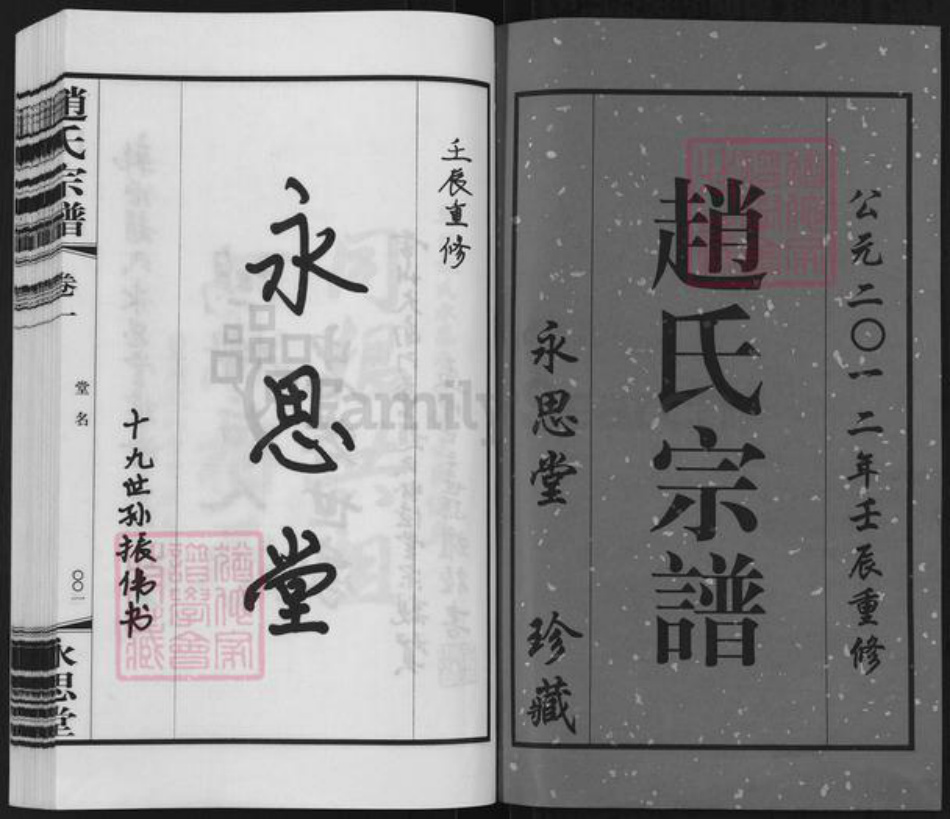 公元二〇一二年壬辰重修
趙氏宗譜
永思堂 珍藏
壬辰重修
永思堂
十九世孙振伟书
趙氏宗譜
卷一
堂名
〇〇一
永思堂